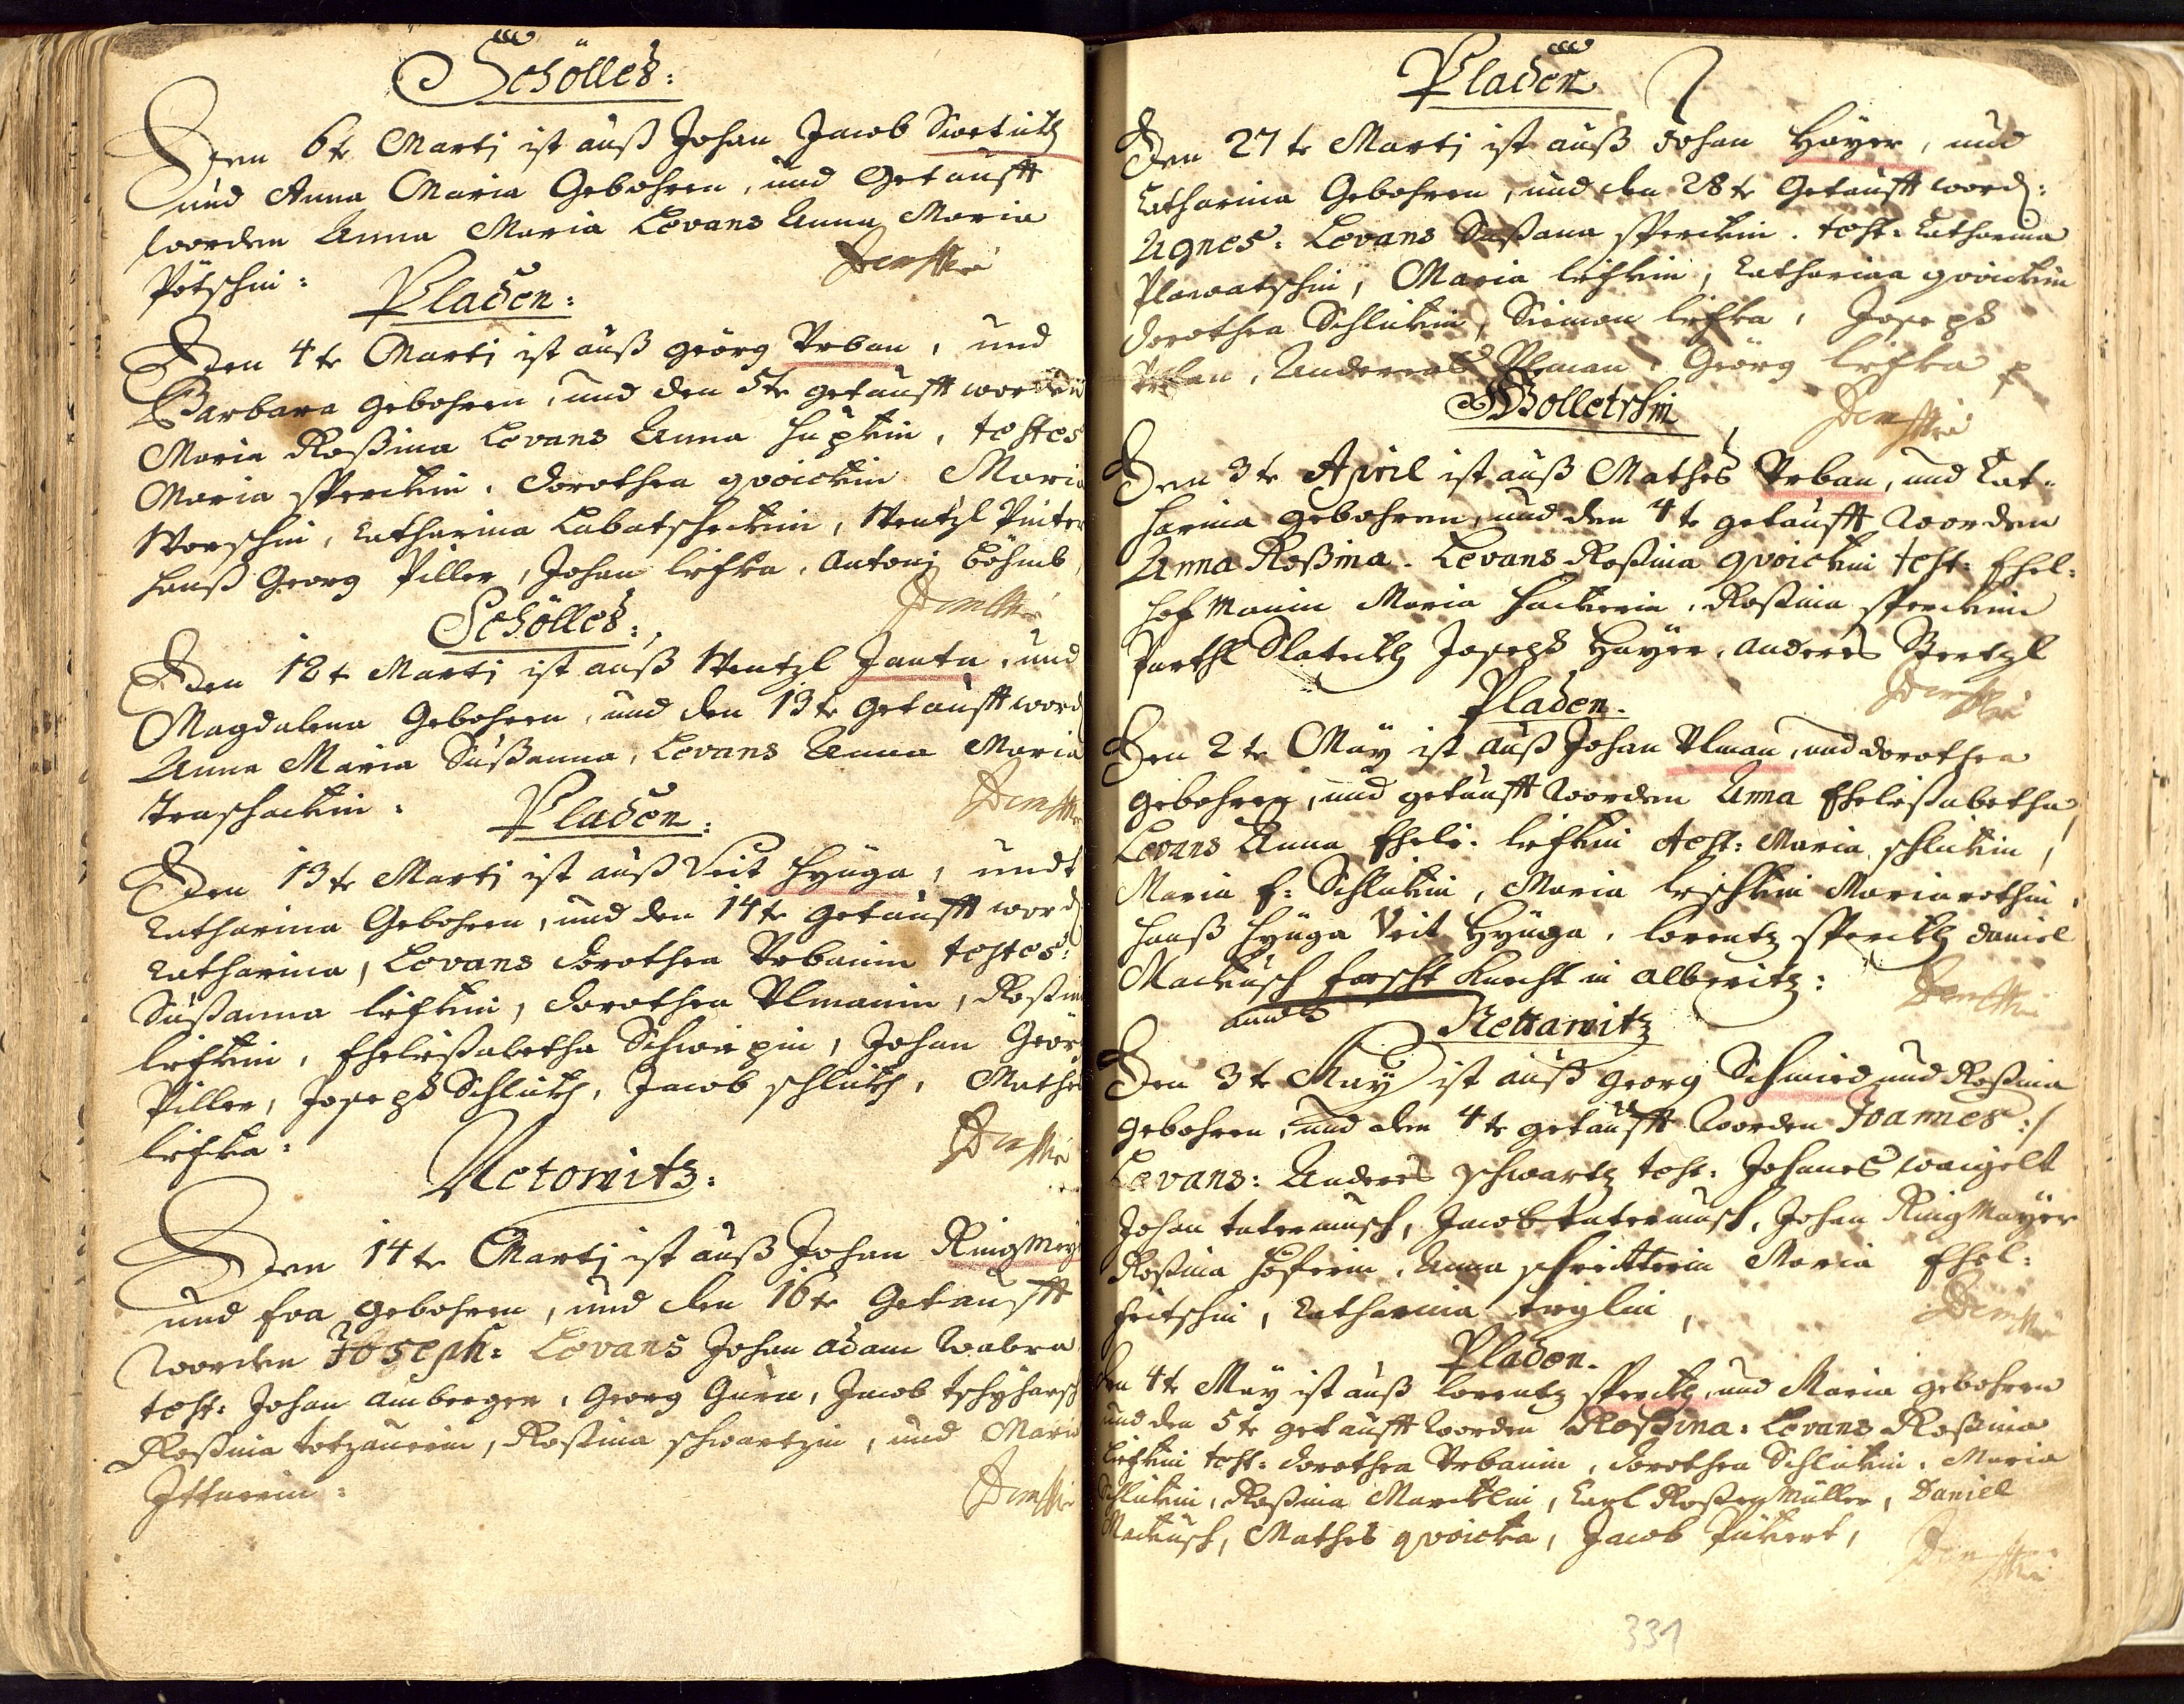 Schölles:
Den 6te Martj ist auß Johan Jacob Swetlik
und Anna Maria Gebohren, und Getaufft
worden Anna Maria Levans Anna Maria
Pötschin:
Pladen:
Den 4te Martj ist auß georg Urban, und
Barbara gebohren, und den 5te getaufft worden
Maria Roßina Levans Anna testes
Maria Sperckin, dorothea qvoickin Maria
Worschin, Catharina Labatscheckin, Wentzl Pinter
Hanß Georg Piller, Johan lifka, Antonj Böhmb,
Schölles:
Den 12t Martj ist auß Wentzl Janta, und
Magdalena Gebohren, und den 13te Getaufft word
Anna Maria Sußanna, Levans Anna Maria
Pladen:
Den 13te Martj ist auß Veit Hyuga, undt
Catharina Gebohren, und den 14te getaufft word
Catharina, Levans dorothea Urbanin testes:
Sußanna lifkin, dorothea Ulmanin, Roßina
lifkin, Eheleißabetha Johan Georg
Piller, Joseph Schluk, Jacob schluk, Mathes
lifka:
Netonitz:
Den 14te Martj ist auß Johan RingMey
und Eva gebohren, und den 16te Getaufft
worden Joseph: Levans Johan adam Wabra
test: Johan Amberger, Georg Gura, Jacob
Roßina totzauerin, Roßina schwartzin, und Maria
Pladen
Den 27te Martj ist auß Johan Hayer, und
Catharina Gebohren, und den 28te Getaufft word:
Agnes: Levans Sußana Sperckin. test: Catharina
Plawatschin, Maria lifkin, Catharina qvoickin
dorothea Schlukin, Simon lifka, Joseph
Urban, Andereas Ulman, Georg lifka p
Wolletschin
Den 3te April ist auß Mathes Urban, und Cat=
harina gebohren, und den 4te getaufft worden
Anna Roßina. Levans Roßina qvoickin test: Ehel:
Hofmanin Maria Hackerin, Roßina Sperckin
Barthl Joseph Hayer, Anderes
Pladen.
Den 2te May ist auß Johan Ulman, und dorothea
gebohren, und getaufft worden Anna Eheleißabetha,
Levans Anna Eheli: lifkin test: Maria schlukin,
Maria E: Schlukin, Maria lischkin Maria rothin,
Hanß Hyuga Veit Hyuga, lorentz Sperckh daniel
Mackusch forscht Knecht in Alberitz:
Nettanitz
Den 3te May ist auß georg Schmied und Roßina
gebohren, und den 4te getaufft worden Joannes:/
Levans: Anderes schwartz test: Johanes waigelt
Johan tatermusch, Jacob tatermusch, Johan RingMayer
Roßina Hoferin, Anna Maria Ehel:
fritschin, Catharina
Pladen.
Den 4te May ist auß lorentz Sperckh, und Maria gebohren
und den 5te getaufft worden Roßina: Levans Roßina
lifkin test: dorothea Urbanin, dorothea Schlukin, Maria
Schlukin, Roßina Marcklin, Carl RoßenMüller, Daniel
Mackusch, Mathes qvoicka, Jacob Pückert,
331